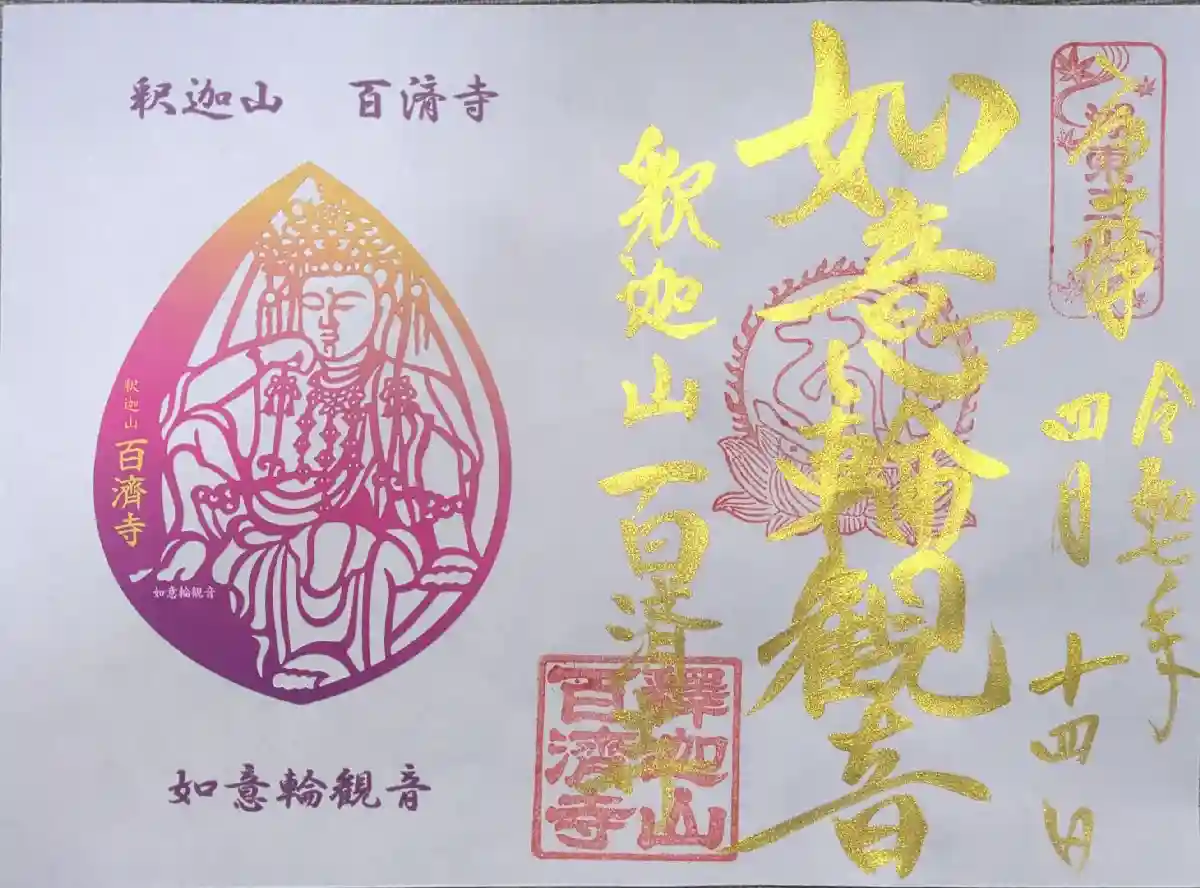 釈迦山　百済寺
釈迦山
百濟寺
如意輪観音
如意輪観音
湖東三山
令和七年
四月十四日
如意輪観音
釈迦山百済寺
釋迦山
百濟寺